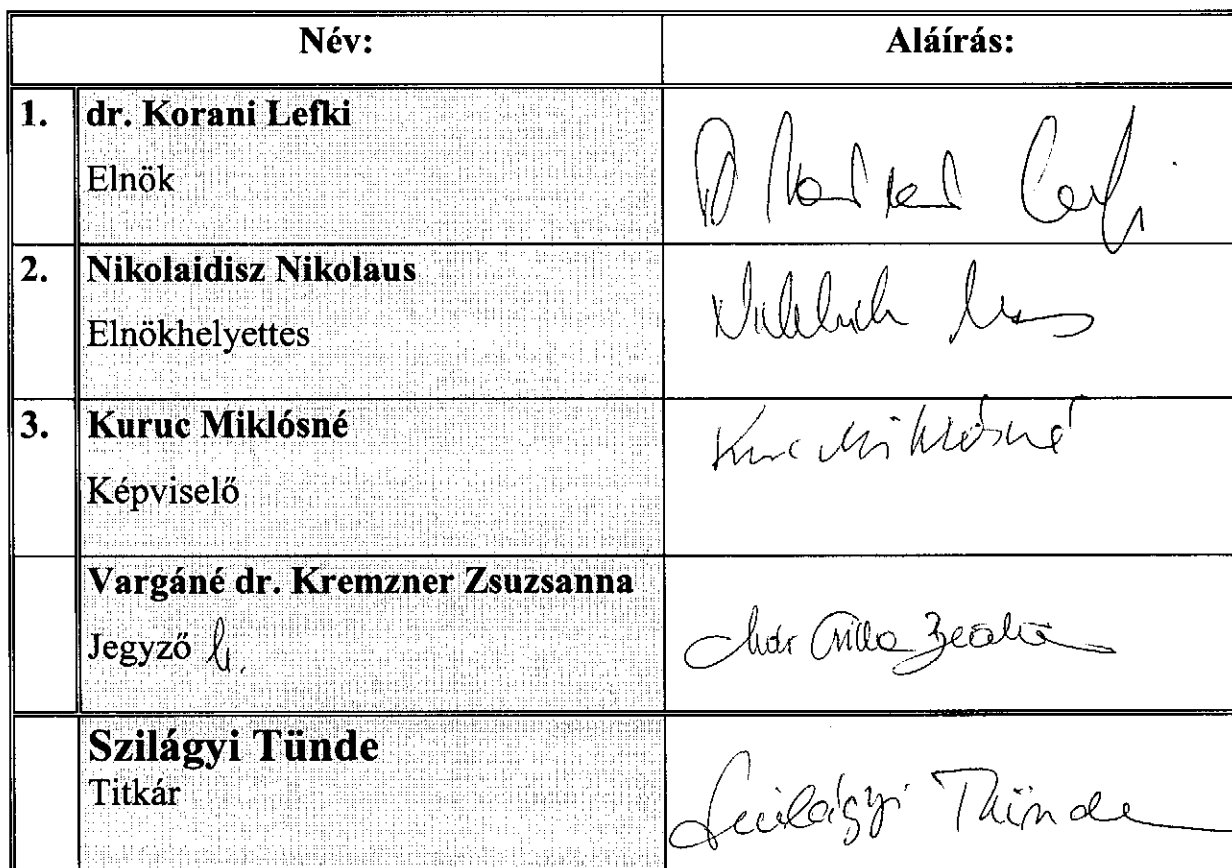 Név: Aláírás:
1. dr. Korani Lefki
Elnök
2. Nikolaidisz Nikolaus
Elnökhelyettes
3. Kuruc Miklósné
Képviselő
Kuruc Miklósné
Vargáné dr. Kremzner Zsuzsanna
Jegyző h.
Szilágyi Tünde
Titkár
Szilágyi Tünde